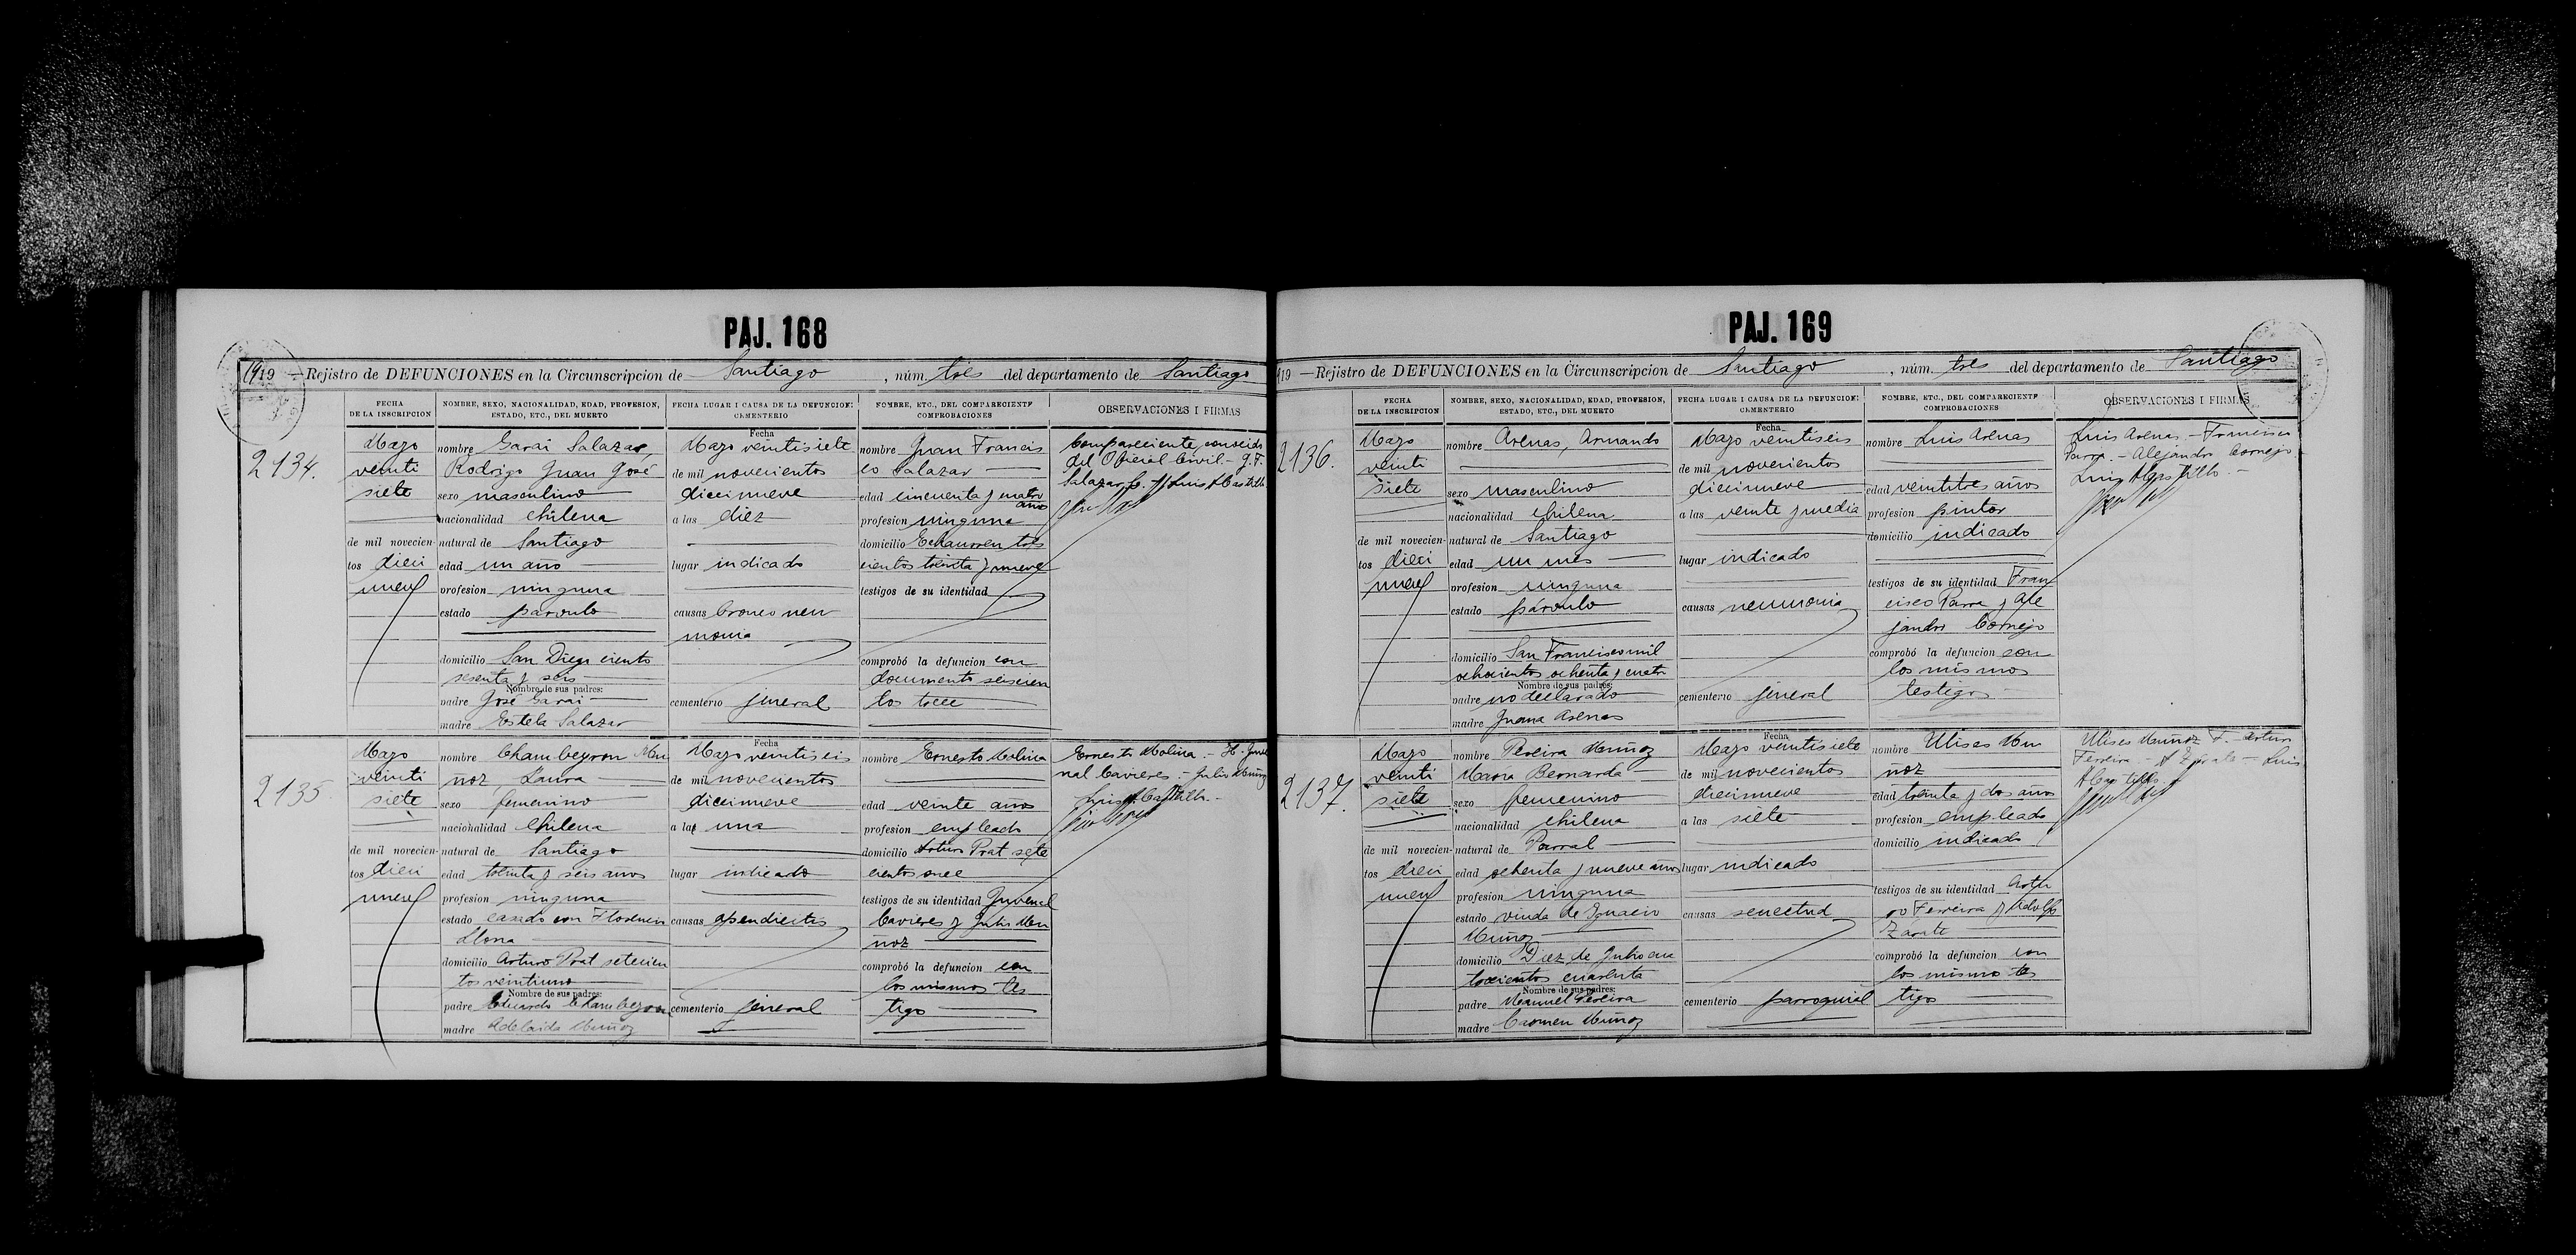 PAJ. 168
1919 —Rejistro de DEFUNCIONES en la Circunscripcion de Santiago, núm. tres del departamento de Santiago
FECHA DE LA INSCRIPCION
NOMBRE, SEXO, NACIONALIDAD, EDAD, PROFESION, ESTADO, ETC., DEL MUERTO
FECHA LUGAR I CAUSA DE LA DEFUNCION: CEMENTERIO
NOMBRE, ETC., DEL COMPARECIENTE COMPROBACIONES
OBSERVACIONES I FIRMAS
2134.
Mayo
veinti
siete
de mil novecien-
tos dieci
nueve
nombre Garai Salazar,
Rodrigo Juan José
sexo masculino
nacionalidad chilena
natural de Santiago
edad un año
profesion ninguna
estado párvulo
domicilio San Diego ciento
sesenta y seis
Nombre de sus padres:
padre José Garai
madre Estela Salazar
Fecha
Mayo veintisiete
de mil novecientos
diecinueve
a las diez
lugar indicado
causas bronco neu
monia
cementerio jeneral
nombre Juan Francis
co Salazar
edad cincuenta y cuatro
años
profesion ninguna
domicilio Echaurren tres
cientos treinta y nueve
testigos de su identidad
comprobó la defuncion con
documento seiscien
tos trece
Compareciente conocido
del Oficial Civil.- J. F.
Salazar
2135
Mayo
veinti
siete
de mil novecien-
tos dieci
nueve
nombre Chambeyron Mu
ñoz, Laura
sexo femenino
nacionalidad chilena
natural de Santiago
edad treinta y seis años
profesion ninguna
estado casada con Florencio
Llona
domicilio Arturo Prat setecien
tos veintiuno
Nombre de sus padres:
padre Eduardo Chambeyron
madre Adelaida Muñoz
Fecha
Mayo veintiseis
de mil novecientos
diecinueve
a las una
lugar indicado
causas apendicitis
cementerio jeneral
nombre Ernesto Molina
edad veinte años
profesion empleado
domicilio Arturo Prat sete
cientos once
testigos de su identidad Juvenal
Cavieres y Julio Mu
ñoz
comprobó la defuncion con
los mismos tes
tigo
Ernesto Molina.- H. Juve
nal Cavieres.- Julio Muñoz
PAJ. 169
1919 —Rejistro de DEFUNCIONES en la Circunscripcion de Santiago, núm. tres del departamento de Santiago
FECHA DE LA INSCRIPCION
NOMBRE, SEXO, NACIONALIDAD, EDAD, PROFESION, ESTADO, ETC., DEL MUERTO
FECHA LUGAR I CAUSA DE LA DEFUNCION: CEMENTERIO
NOMBRE, ETC., DEL COMPARECIENTE COMPROBACIONES
OBSERVACIONES I FIRMAS
2136.
Mayo
veinti
siete
de mil novecien-
tos dieci
nueve
nombre Arenas, Armando
sexo masculino
nacionalidad chilena
natural de Santiago
edad un mes
profesion ninguna
estado párvulo
domicilio San Francisco mil
ochocientos ochenta y cuatro
Nombre de sus padres:
padre no declarado
madre Juana Arenas
Fecha
Mayo veintiseis
de mil novecientos
diecinueve
a las veinte y media
lugar indicado
causas neumonia
cementerio jeneral
nombre Luis Arenas
edad veintitres años
profesion pintor
domicilio indicado
testigos de su identidad Fran
cisco Parra y Ale
jandro Cornejo
comprobó la defuncion con
los mismos
testigos
Luis Arenas.- Francisco
Parra.- Alejandro Cornejo
2137.
Mayo
veinti
siete
de mil novecien-
tos dieci
nueve
nombre Pereira Muñoz
Maria Bernarda
sexo femenino
nacionalidad chilena
natural de Parral
edad ochenta y nueve años
profesion ninguna
estado viuda de Ignacio
Muñoz
domicilio Diez de Julio cua
trocientos cuarenta
Nombre de sus padres:
padre Manuel Pereira
madre Carmen Muñoz
Fecha
Mayo veintisiete
de mil novecientos
diecinueve
a las siete
lugar indicado
causas senectud
cementerio parroquial
nombre Ulises Mu
ñoz
edad treinta y dos años
profesion empleado
domicilio indicado
testigos de su identidad Artu
ro Ferreira y Adolfo
Zarate
comprobó la defuncion con
los mismo tes
tigo
Ulises Muñoz F.- Arturo
Ferreira - A Zarate - Luis